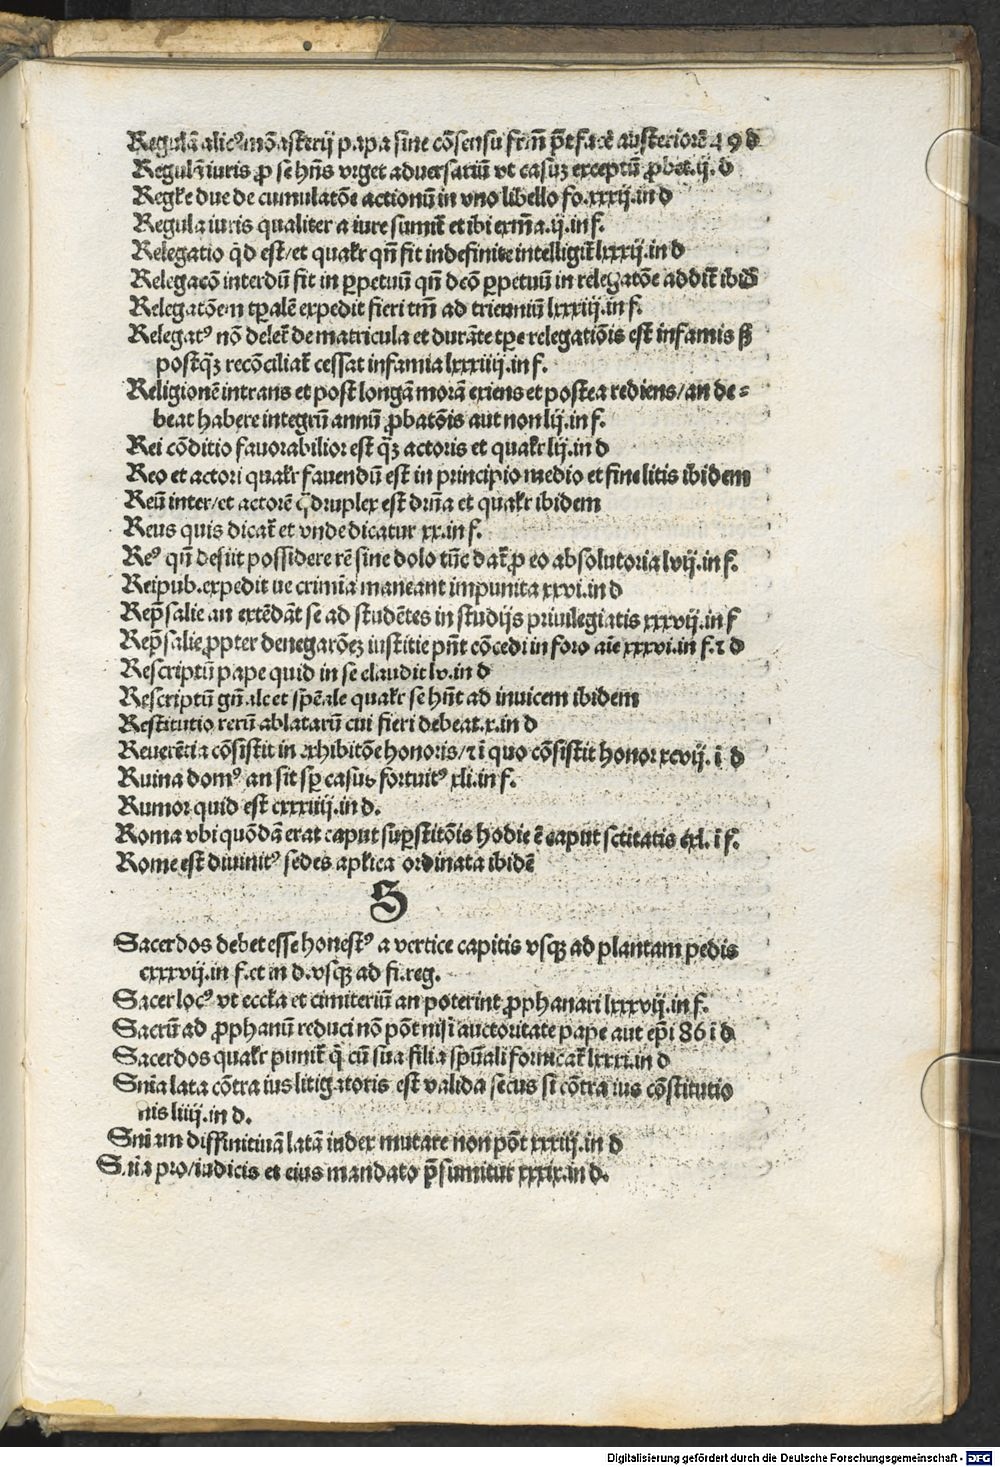 Regulā alicꝰ mōasterij papa sine cōsensu frm̄ pōt facē austeriorē 49 d
Regula iuris ꝓ se hn̄s vrget aduersariū vt casuꝫ exceptū ꝓbet.ij.d
Regl̄e due de cumulatōe actionū in vno libello fo.xxxij.in d
Regula iuris qualiter a iure sumit̄ et ibi exm̄a.ij.in f.
Relegatio qd̄ est/et qual̄r qn̄ fit indefinite intelligit̄ lxxxij.in d
Relegacō interdū fit in ꝑpetuū qn̄ dcō ꝑpetuū in relegatōe addit̄ ibid̄
Relegatōem tꝑalē expedit fieri tm̄ ad trienniū lxxxiij.in f.
Relegatꝰ nō delet̄ de matricula et durāte tꝑe relegatiōis est infamis sꝫ
postqꝫ recōciliat̄ cessat infamia lxxxiiij.in f.
Religionē intrans et post longā morā exiens et postea rediens/an de⸗
beat habere integrū annū ꝓbatōis aut non lij.in f.
Rei cōditio fauorabilior est qꝫ actoris et qual̄r lij.in d
Reo et actori qual̄r fauendū est in principio medio et fine litis ibidem
Reū inter/et actorē q̄druplex est drn̄a et qual̄r ibidem
Reus quis dicat̄ et vnde dicatur xx.in f.
Reꝰ qn̄ desiit possidere rē sine dolo tūc dat̄ ꝓ eo absolutoria lvij.in f.
Reipub.expedit ne crimīa maneant impunita xxvi.in d
Rep̄salie an extēdāt se ad studētes in studijs priuilegiatis xxxvij.in f
Rep̄salie ꝓpter denegatōeꝫ iustitie pn̄t cōcedi in foro aīe xxxvi.in f.⁊ d
Rescriptū pape quid in se claudit lv.in d
Rescriptū gn̄ale et sp̄eale qual̄r se hn̄t ad inuicem ibidem
Restitutio rerū ablatarū cui fieri debeat.x.in d
Reuerētia cōsistit in exhibitōe honoris/⁊ ī quo cōsistit honor xcvij. ī d
Ruina domꝰ an sit sꝑ casus fortuitꝰ xli.in f.
Rumor quid est cxxxiiij.in d.
Roma vbi quōdā erat caput suꝑstitōis hodie ē caput sctitatis cxl. ī f.
Rome est diuinitꝰ sedes apl̄ica ordinata ibidē
S
Sacerdos debet esse honestꝰ a vertice capitis vsqꝫ ad plantam pedis
cxxxvij.in f.et in d.vsqꝫ ad fi.reg.
Sacer locꝰ vt eccl̄a et cimiteriū an poterint ꝓphanari lxxxvij.in f.
Sacrū ad ꝓphanū reduci nō pōt nisi auctoritate pape aut ep̄i 86 ī d
Sacerdos qual̄r punit̄ q̄ cū sua filia sp̄uali fornicat̄ lxxxi.in d
Snīa lata cōtra ius litigatoris est valida secus si cōtra ius cōstitutio
nis liiij.in d.
Snīam diffinitiuā latā iudex mutare non pōt xxxiij.in d
Snīa pro/iudicis et eius mandato p̄sumitur xxxix.in d.
Digitalisierung gefördert durch die Deutsche Forschungsgemeinschaft - DFG